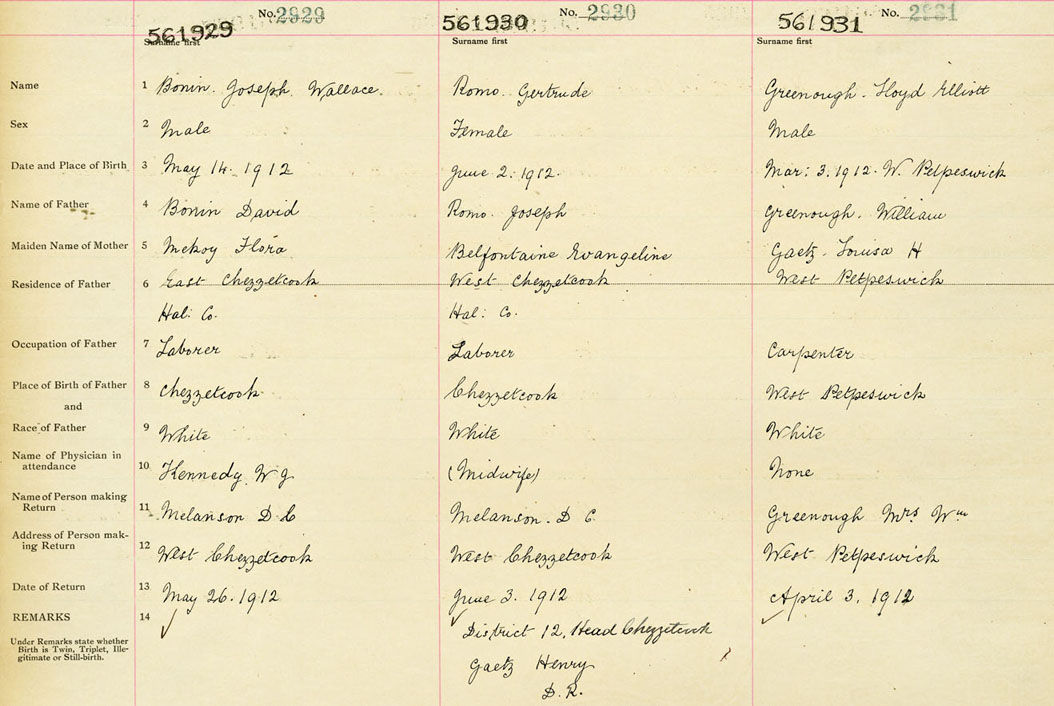 No. 2929 No. 2930 No. 2931
561929 561930 561931
Surname first Surname first Surname first
Name 1 Bonin. Joseph. Wallace. Romo. Gertrude Greenough. Lloyd Elliott
Sex 2 Male Female Male
Date and Place of Birth 3 May 14. 1912 June 2. 1912. Mar: 3. 1912. W. Petpeswick
Name of Father 4 Bonin David Romo. Joseph Greenough. William
Maiden Name of Mother 5 McKoy Flora Belfontaine Evangeline Gaetz. Louisa H
Residence of Father 6 East Chezzetcook West Chezzetcook West Petpeswick
Hal: Co. Hal: Co.
Occupation of Father 7 Laborer Laborer Carpenter
Place of Birth of Father 8 Chezzetcook Chezzetcook West Petpeswick
and
Race of Father 9 White White White
Name of Physician in
attendance 10 Kennedy W G (Midwife) None
Name of Person making
Return 11 Melanson D C Melanson. D C Greenough Mrs Wm
Address of Person mak-
ing Return 12 West Chezzetcook West Chezzetcook West Petpeswick
Date of Return 13 May 26. 1912 June 3. 1912 April 3, 1912
REMARKS 14 District 12, Head Chezzetcook
Under Remarks state whether
Birth is Twin, Triplet, Ille-
gitimate or Still-birth.
Gaetz Henry
D. R.